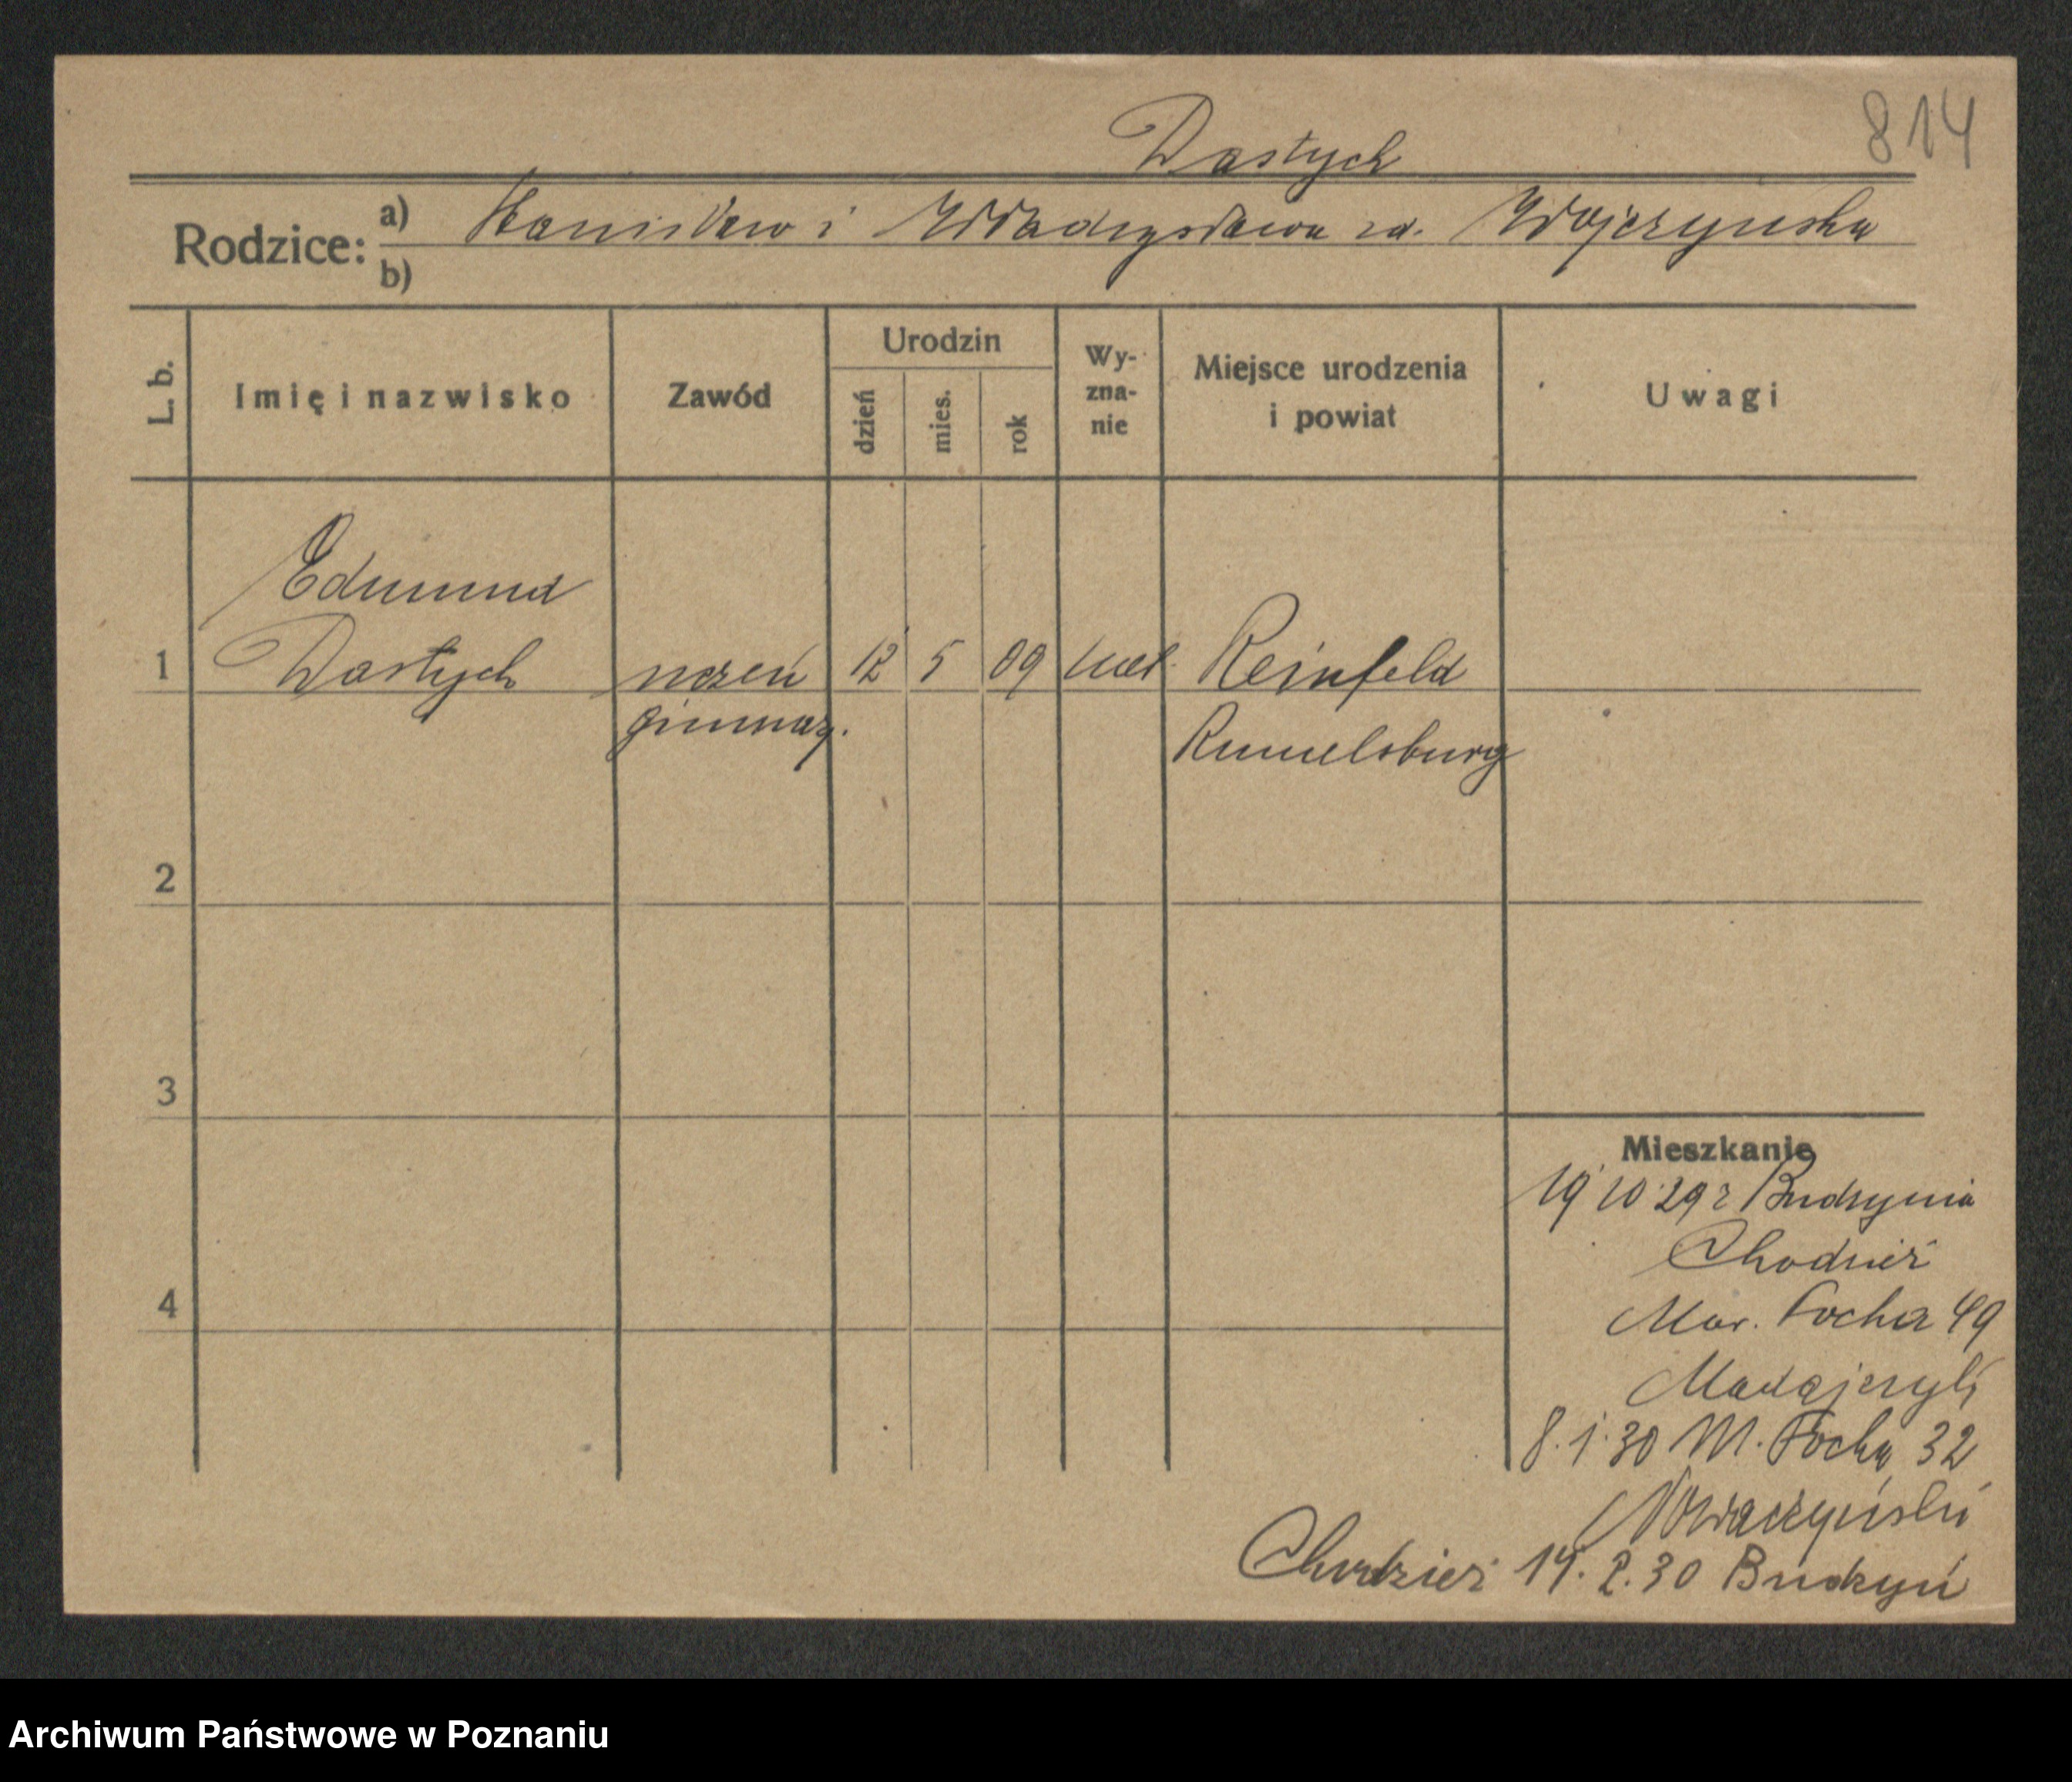 814
Dastych
Rodzice: a) Stanisław i Władysława zd. Wojczyńska
b)
L. b.
Imię i nazwisko
Zawód
Urodzin
dzień
mies.
rok
Wy-
zna-
nie
Miejsce urodzenia
i powiat
Uwagi
Edmund
1 Dastych uczeń 12 5 09 kat. Reinfeld
gimnaz. Rummelsburg
2
3
4
Mieszkanie
19 10 29 z Budzynia
Chodzież
Mar. Focha 49
8.1.30 M. Focha 32
Nowaczyński
Chodzież 14.2.30 Budzyń
Archiwum Państwowe w Poznaniu